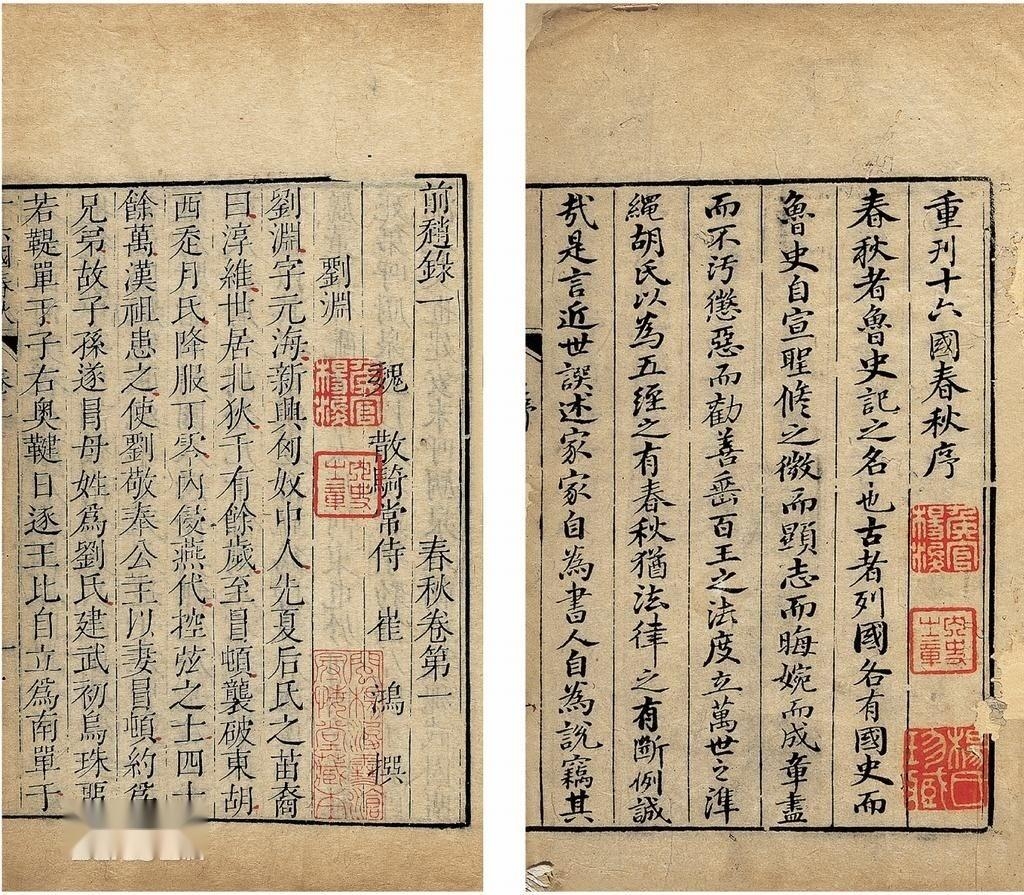 重刊十六國春秋序
春秋者魯史記之名也古者列國各有國史而
魯史自宣聖脩之微而顯志而晦婉而成章盡
而不汚懲惡而勸善垂百王之法度立萬世之準
繩胡氏以為五經之有春秋猶法律之有斷例誠
哉是言近世譔述家家自為書人自為說竊其
前趙錄一 春秋卷第一
魏 散騎常侍 崔 鴻 撰
劉淵
劉淵字元海新興匈奴中人先夏后氏之苗裔
曰淳維世居北狄千有餘歲至冒頓襲破東胡
西走月氏降服丁零內侵燕代控弦之士四十
餘萬漢祖患之使劉敬奉公主以妻冒頓約爲
兄弟故子孫遂冒母姓爲劉氏建武初烏珠
若鞮單于子右奧鞬日逐王比自立爲南單于